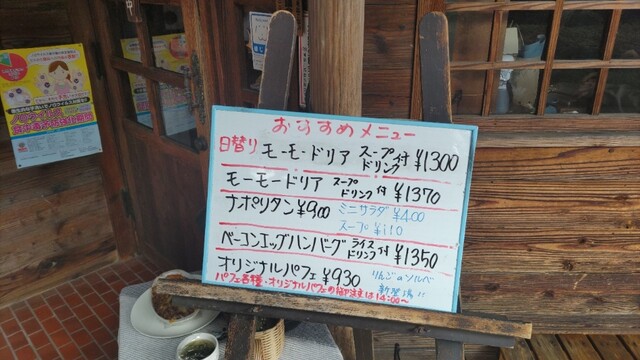 おすすめメニュー
日替り モーモードリア スープ ドリンク 付 ¥1300
モーモードリア スープ ドリンク 付 ¥1370
ナポリタン¥900 ミニサラダ ¥400
スープ ¥110
ベーコンエッグハンバーグ ライス ドリンク 付 ¥1350
オリジナルパフェ ¥930 りんごのソルベ
新登場!!
パフェ各種・オリジナルパフェの御注文は14:00〜